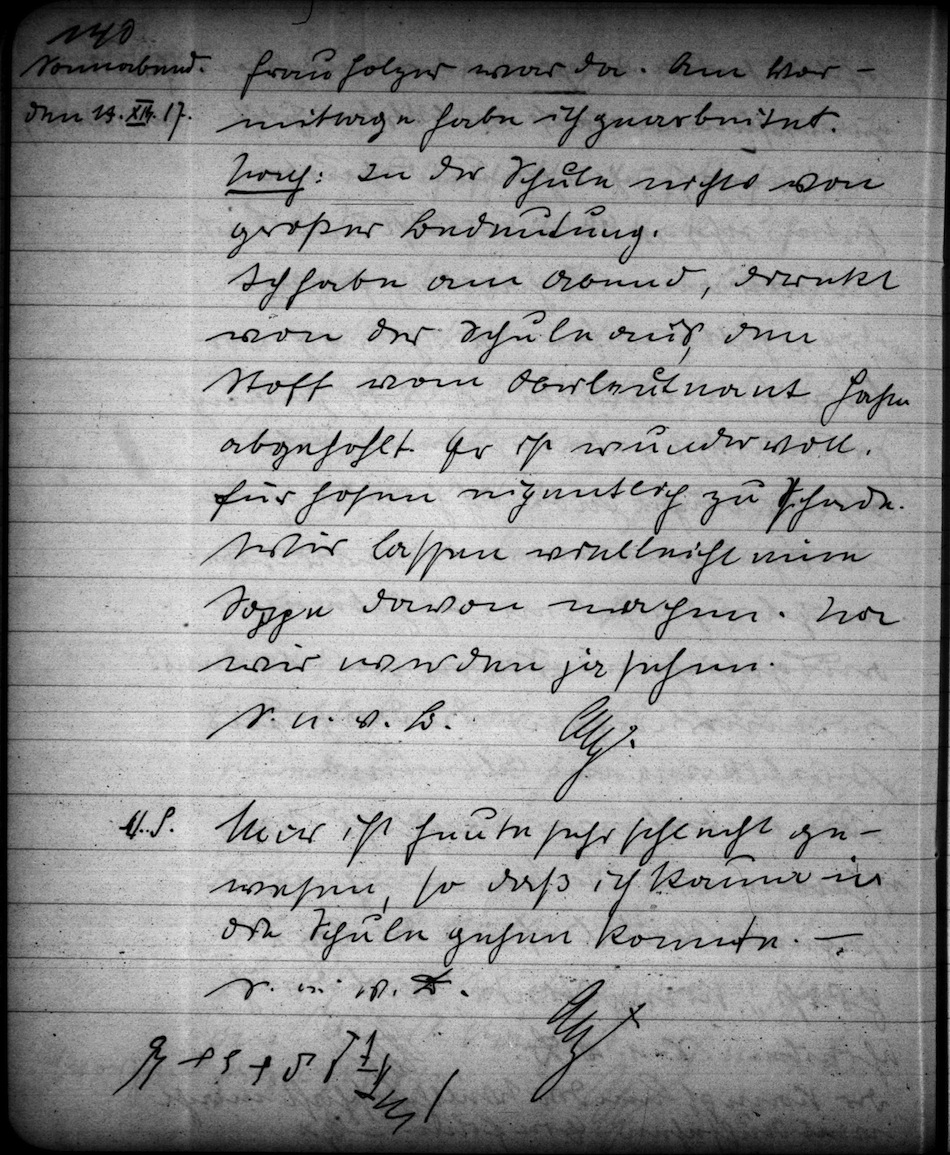 140
Sonnabend.
den 29. XII. 17.
Frau Holzer war da. Am Vor-
mittage habe ich gearbeitet.
Nach: In der Schule nichts von
großer Bedeutung.
Ich habe am Abend, direkt
von der Schule aus, den
Stoff vom Oberleutnant Hahn
abgehohlt. Er ist wundervoll.
für Hosen eigentlich zu schade.
Wir lassen vielleicht eine
Joppe davon machen. Na
wir werden ja sehen.
S. u. w. B.
N.S.
Mir ist heute sehr schlecht ge-
wesen, so daß ich kaum in
die Schule gehen konnte. —
S. u. w. B.